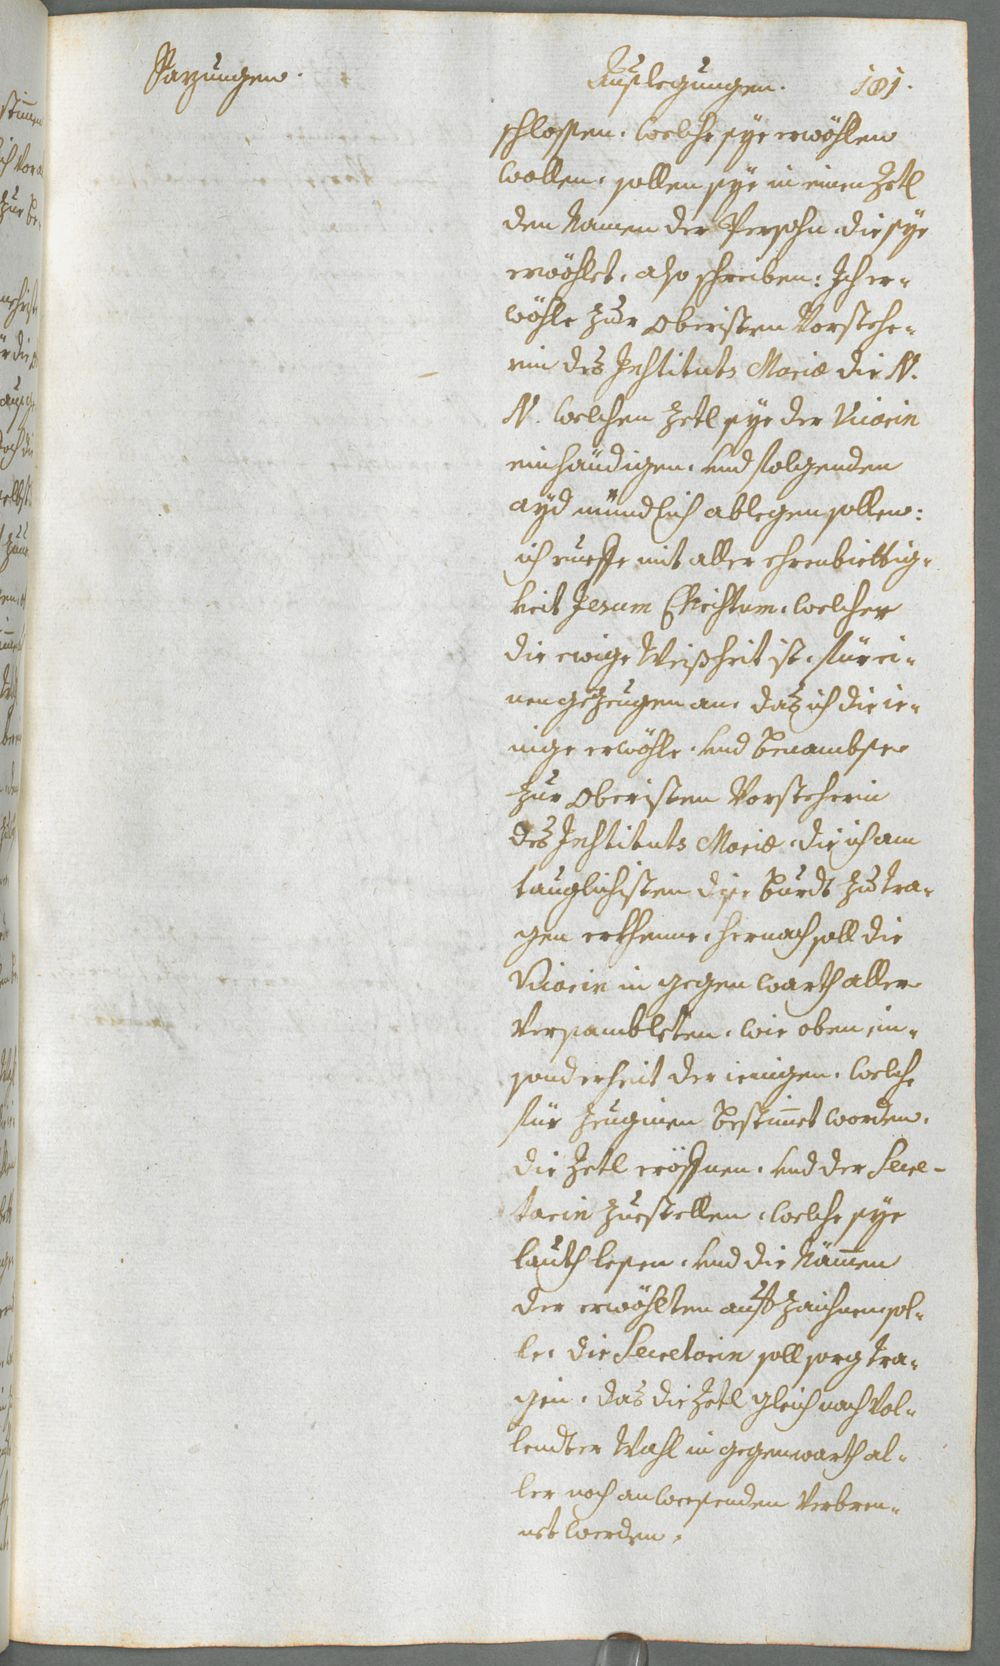 Sazungen.
Auslegungen. 181.
schlossen. welche sye erwöhlen
wollen, sollen sye in einen Zetl
den Namen der Persohn die sye
erwöhlet, also schreiben: Ich er-
wöhle zur Oberisten Vorstehe-
rin des Instituts Mariæ die N.
N. welchen Zetl sye der Vicarin
einhändigen, und folgenden
ayd mündlich ablegen sollen:
ich rueffe mit aller ehrenbiettig-
keit Jesum Christum, welcher
die ewige Weißheit ist, für ei-
nen gezeugen an, daz ich die ie-
nige erwöhle, und benambse
zur Oberisten Vorsteherin
des Instituts Mariæ, die ich am
tauglichisten dise bürdt zu tra-
gen erkhenne, hernach soll die
Vicarin in gegenwarth aller
Versambleten, wie oben, in-
sonderheit der ienigen, welche
für Zeuginen bestim̄et worden,
die Zetl eröffnen, und der Secre-
tarin zuestellen, welche sye
lauth lesen, und die Nam̄en
der erwöhlten aufzaichnen sol-
le, die Secretarin soll sorg tra-
gen, das die Zetl gleich nach vol-
lendter Wahl in gegenwarth al-
ler noch anwesenden verbren-
net werden.